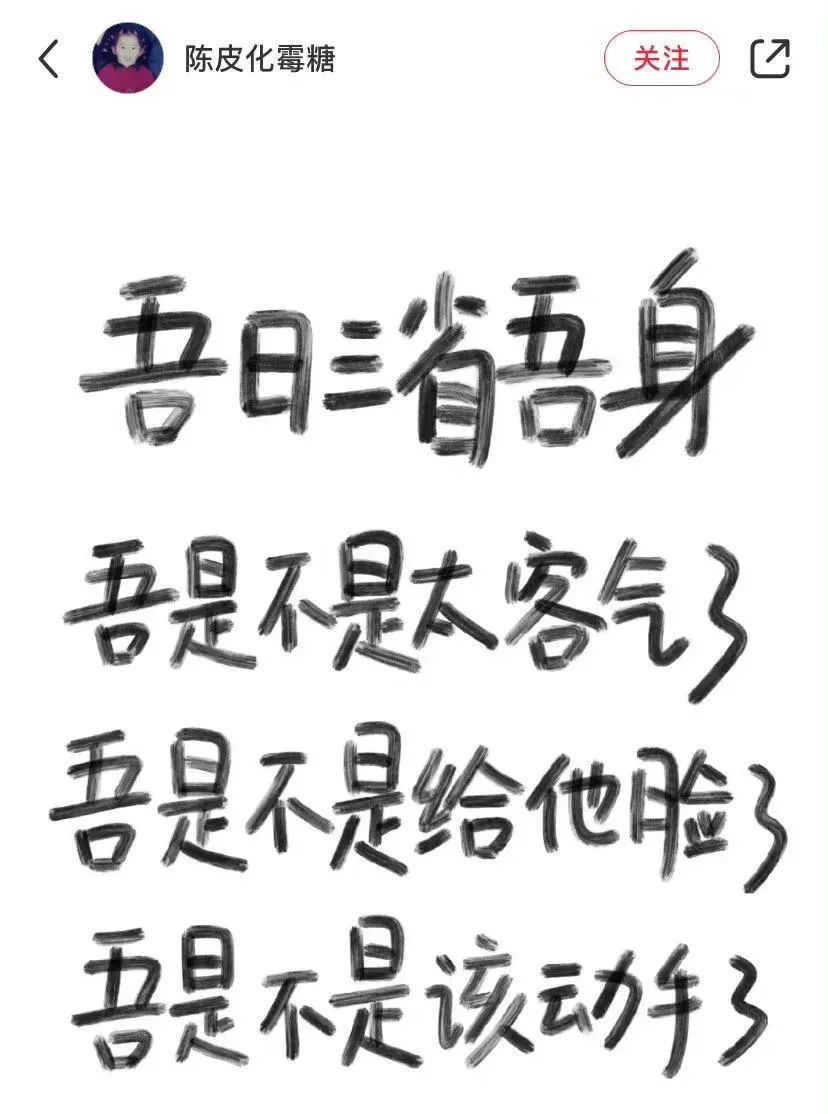 陈皮化霉糖 关注
吾日三省吾身
吾是不是太客气了
吾是不是给他脸了
吾是不是该动手了